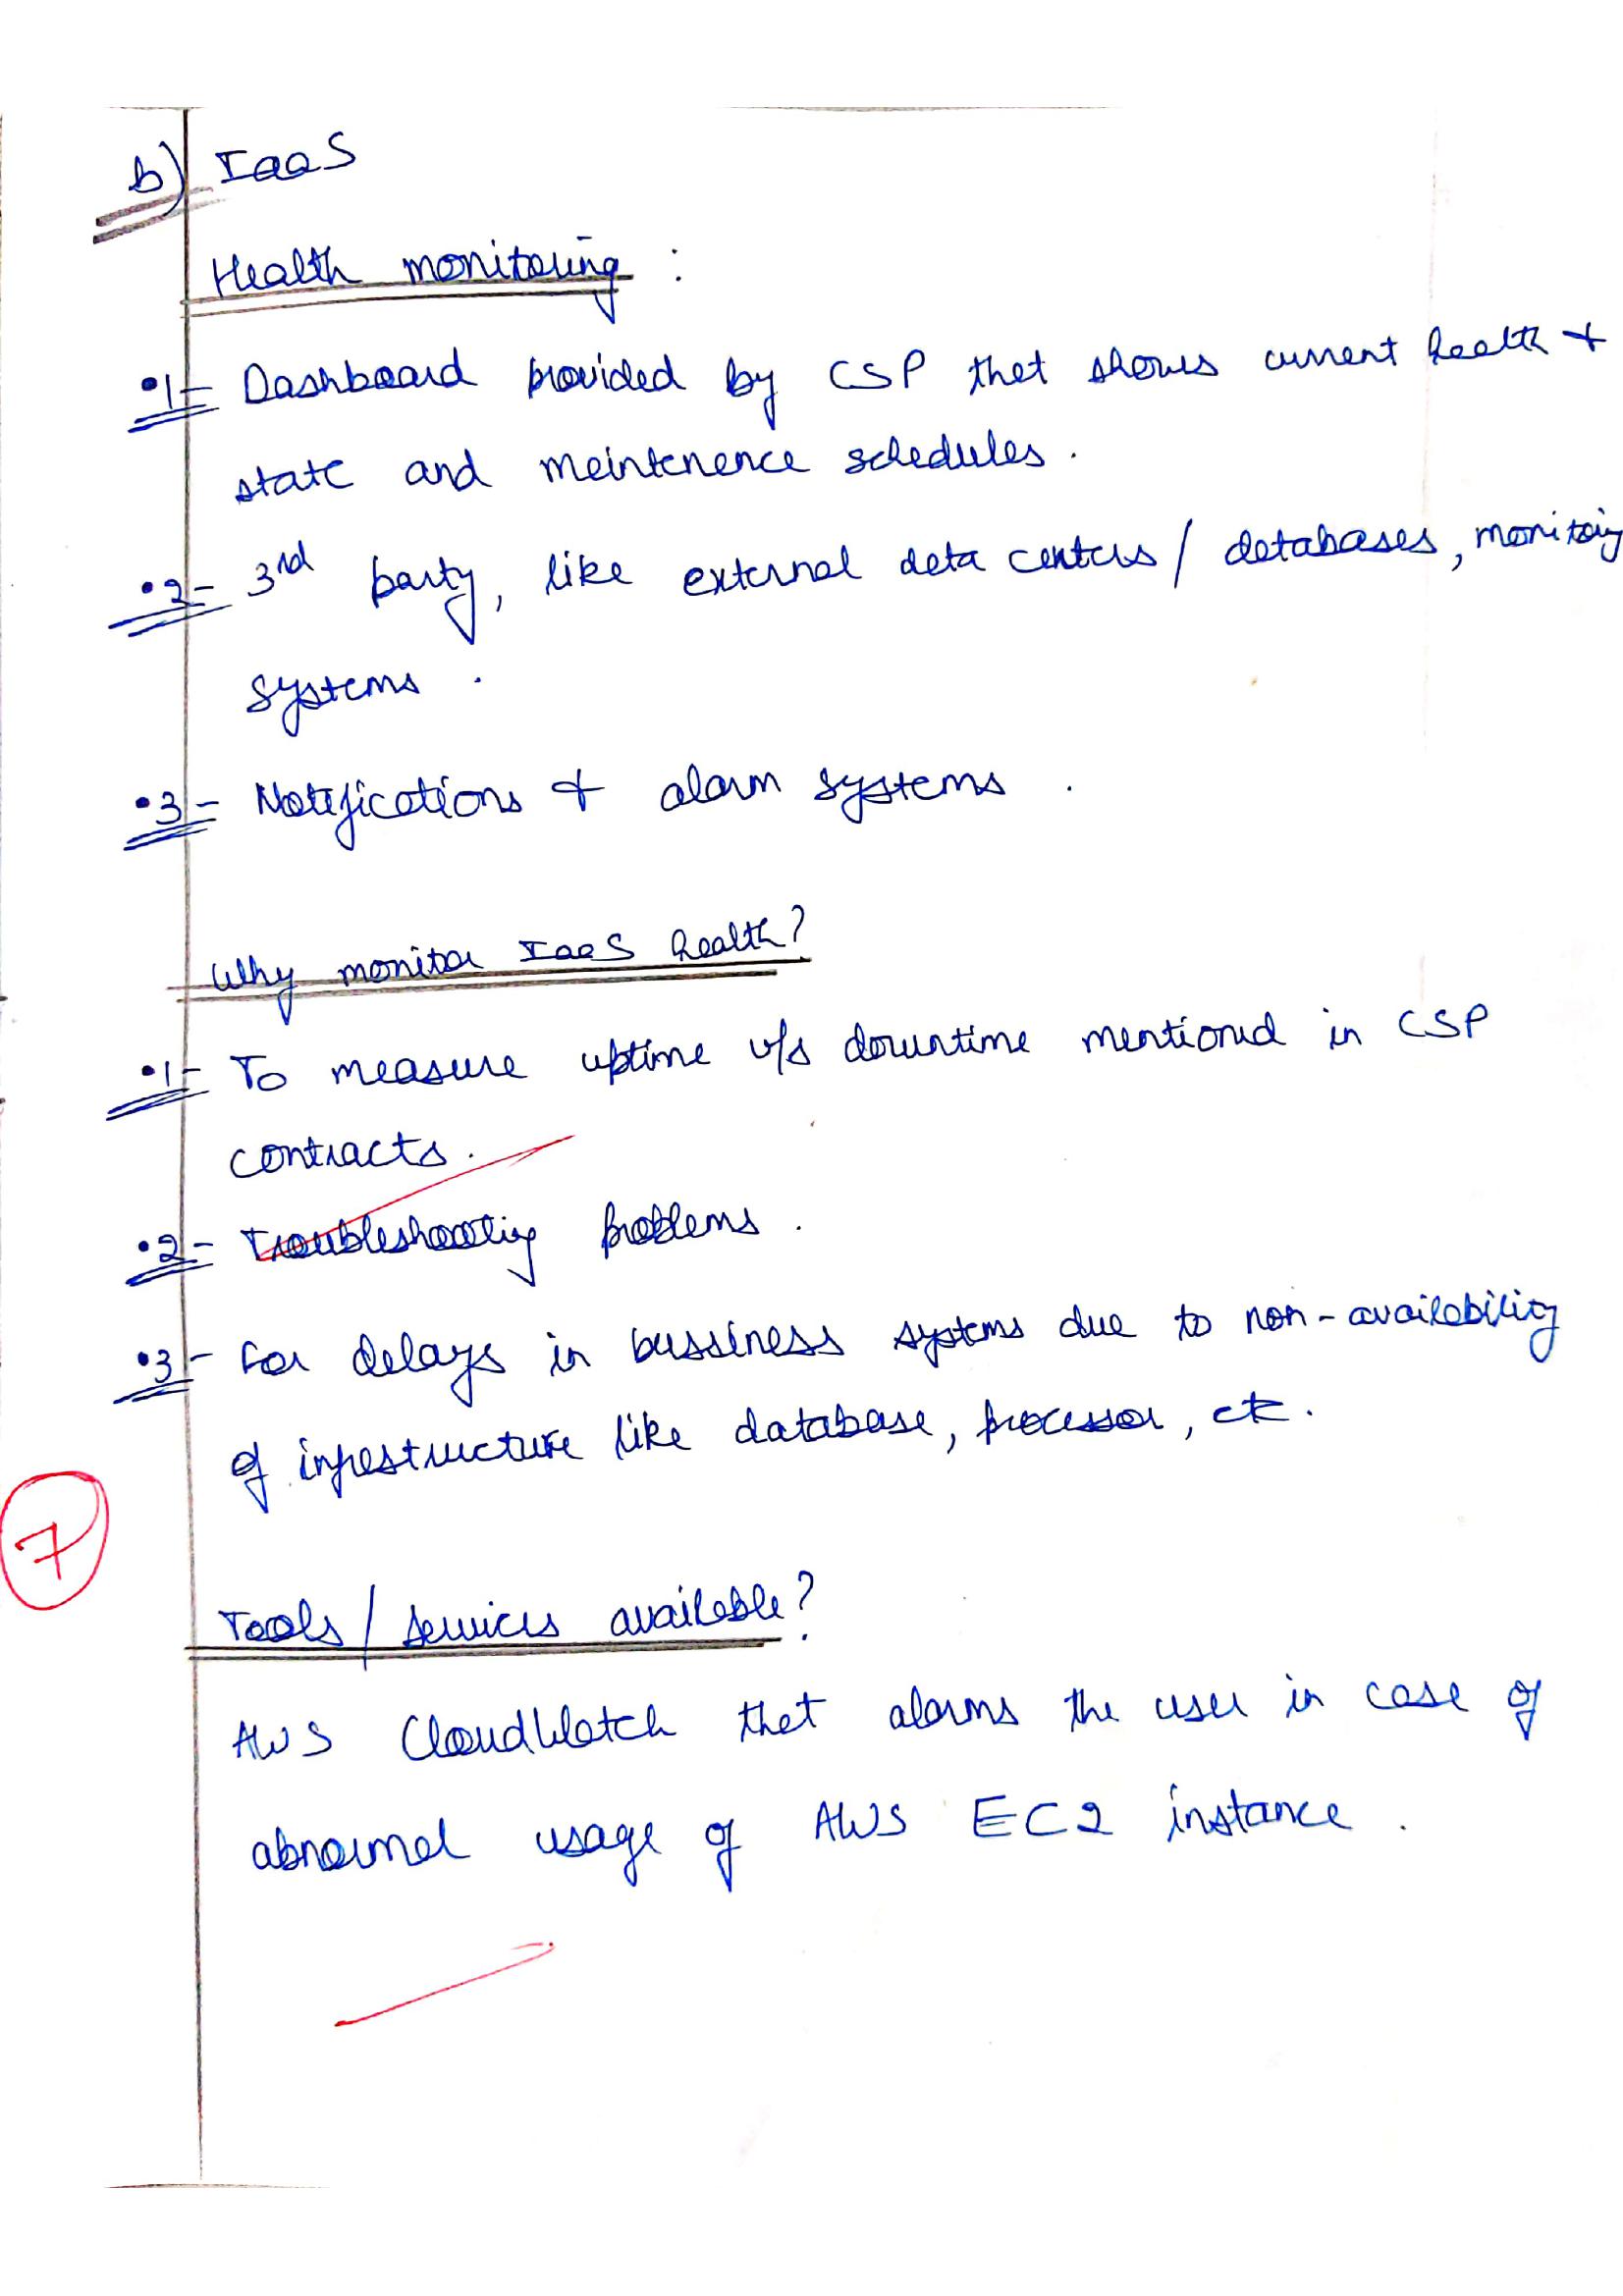 b) IaaS
Health monitoring :
•1- Dashboard provided by CSP that shows current health &
state and meintenence schedules.
•2- 3rd party, like external data centers / databases, monitoring
systems.
•3- Notifications & alarm systems.
Why monitor IaaS health?
•1- To measure uptime v/s downtime mentioned in CSP
contracts.
•2- Troubleshooting problems.
•3- For delays in bussiness systems due to non-availability
of infrestructure like database, processor, etc.
7
Tools / services available?
AWS CloudWatch that alarms the user in case of
abnormal usage of AWS EC2 instance.